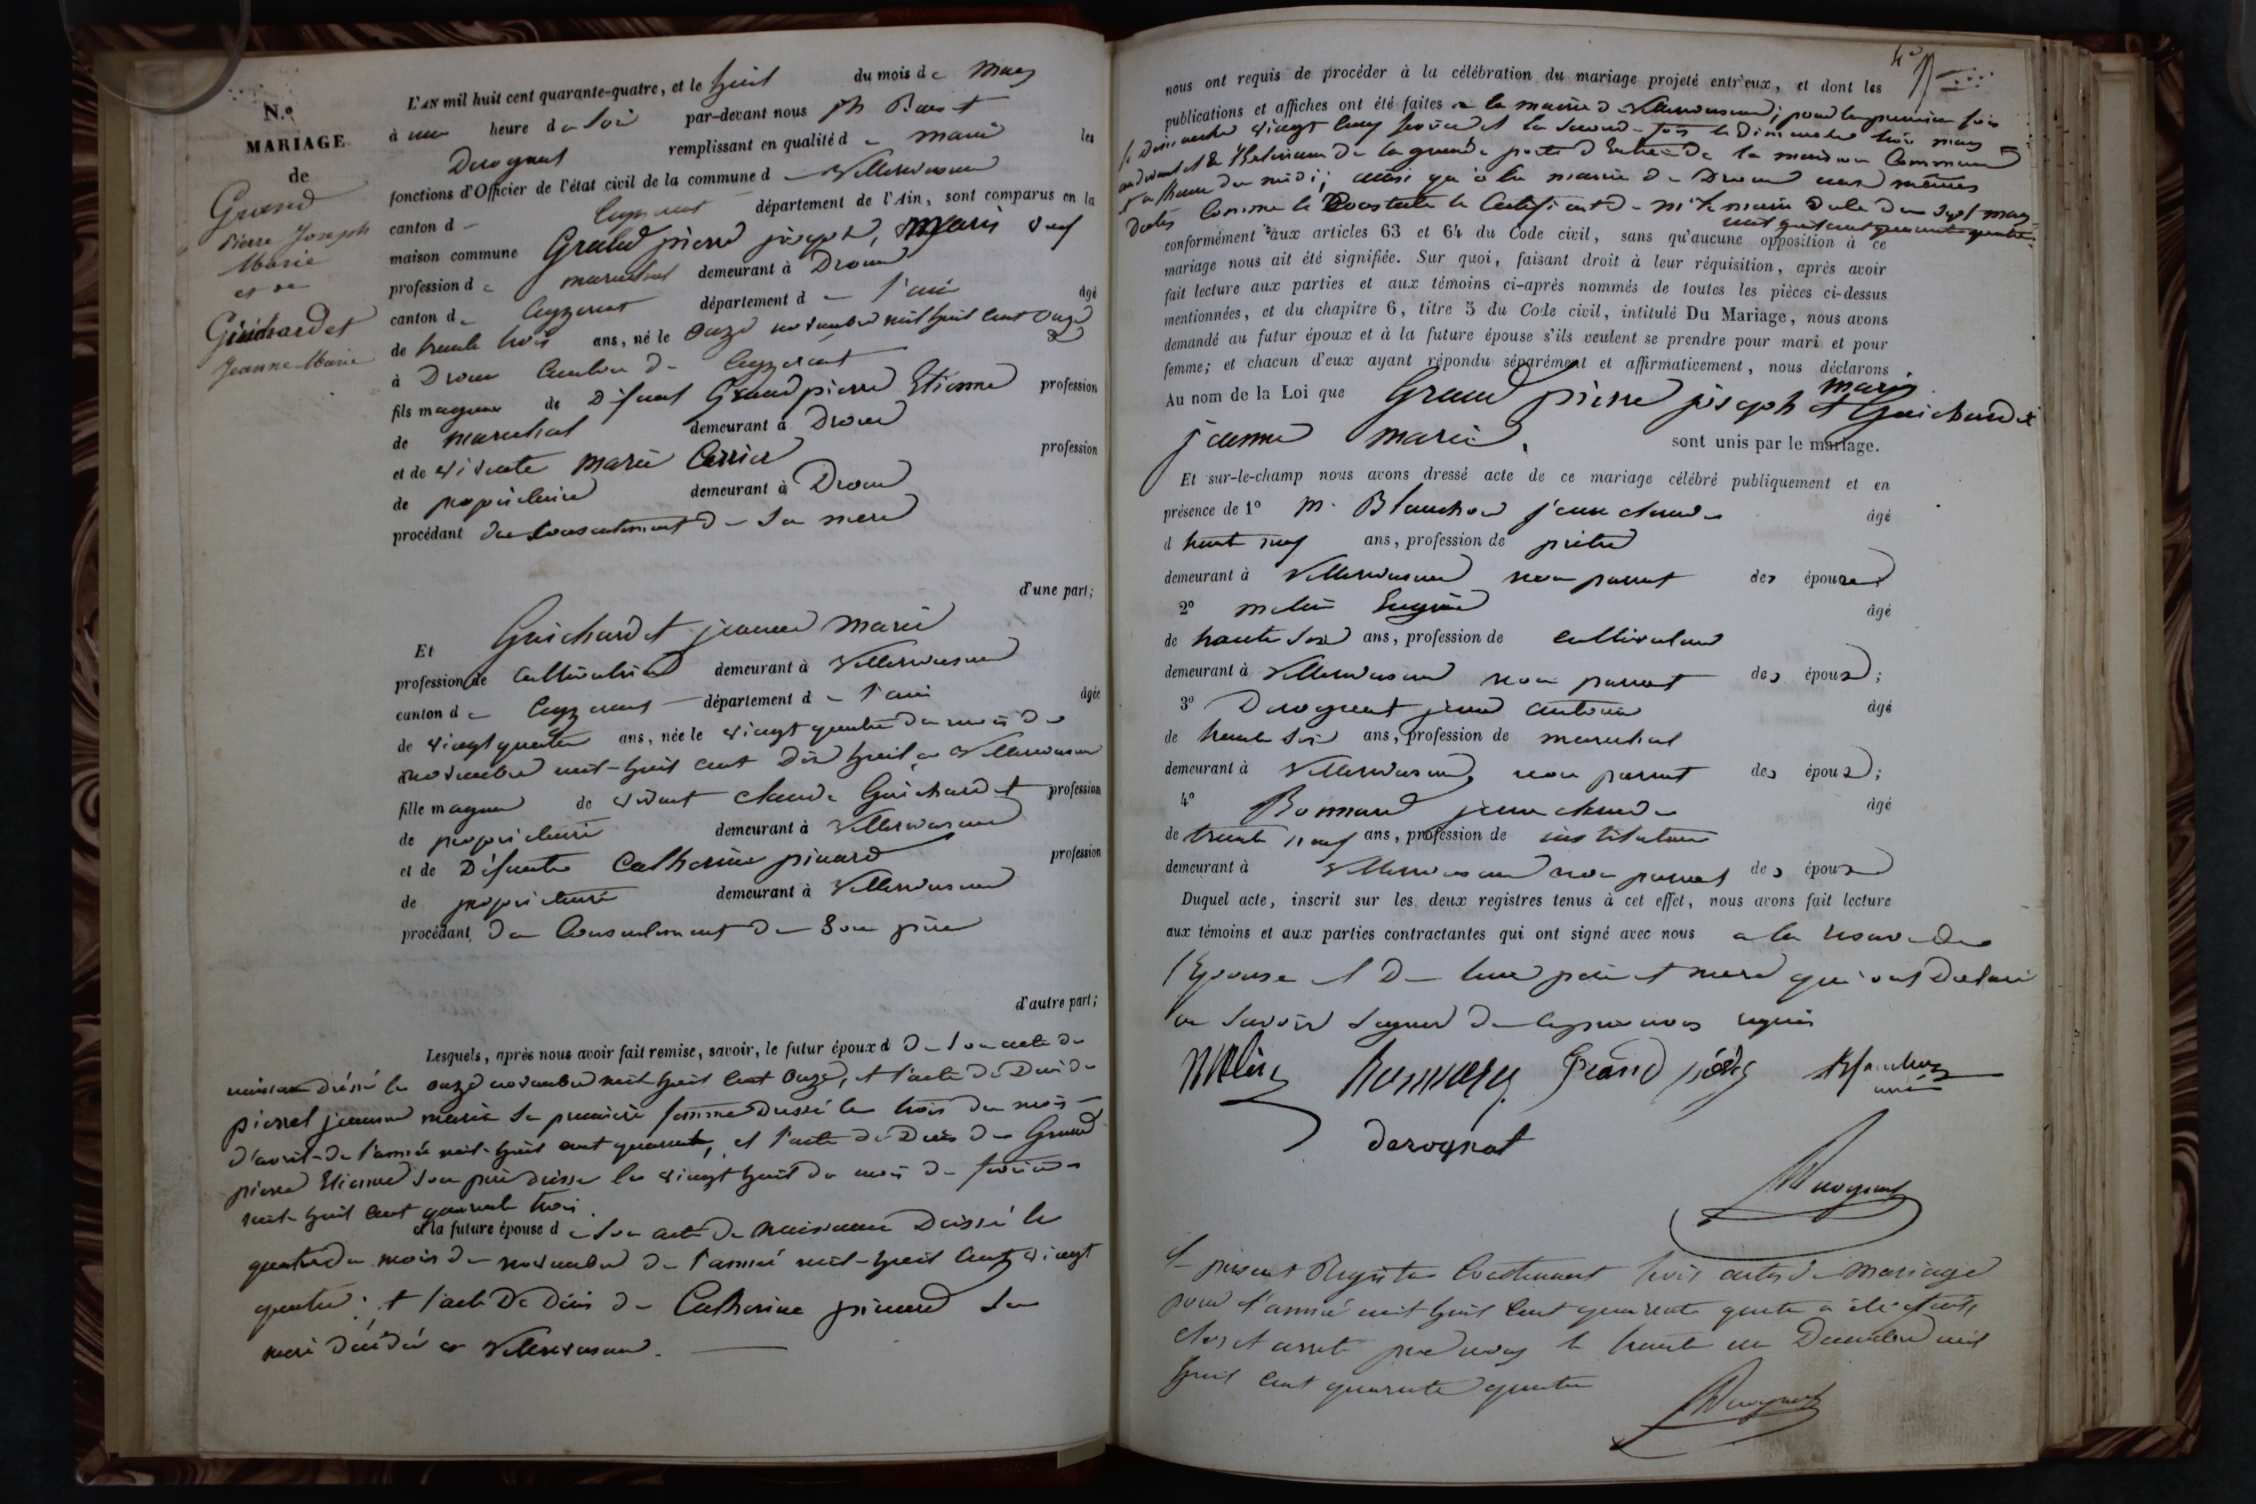 N.º
MARIAGE
de
Grand
Pierre Joseph
Marie
et de
Guichardet
Jeanne Marie
L'AN mil huit cent quarante-quatre, et le huit du mois de mars
à une heure du soir par-devant nous
Derognat remplissant en qualité de maire les
fonctions d'Officier de l'état civil de la commune d Villereversure
canton d Ceyzeriat département de l'Ain, sont comparus en la
maison commune Grand pierre joseph, marie veuf
profession de marechal demeurant à Drom
canton de Ceyzeriat département de l'ain âgé
de trente trois ans, né le onze novembre mil huit cent onze
à Drom Canton de Ceyzeriat
fils majeur de Défunt Grand pierre Etienne profession
de marechal demeurant à Drom
et de vivante marie profession
de propriétaire demeurant à Drom
procédant du Consentement de sa mere
d'une part;
Et Guichardet jeanne marie
profession de cultivatrice demeurant à Villereversure
canton de Ceyzeriat département de l'ain âgée
de vingt quatre ans, née le vingt quatre du mois de
novembre mil-huit cent dix huit a Villereversure
fille majeur de vivant claude Guichardet profession
de propriétaire demeurant à Villereversure
et de Défunte Catherine pinard profession
de propriétaire demeurant à Villereversure
procédant du Consentement de Son père
d'autre part;
Lesquels, après nous avoir fait remise, savoir, le futur époux d De son acte de
naissance dressé le onze novembre mil huit cent onze, et l'acte de Décès de
jeanne marie sa premiere femme dressé le trois du mois
d'avril de l'année mil-huit cent quarante, et l'acte de Décès de Grand
pierre Etienne son père dressé le vingt huit du mois de fevrier
mil huit cent quarante trois.
et la future épouse de son acte de naissance Dressé le
quatre du mois de novembre de l'année mil-huit cent vingt
quatre; et l'acte De Décès de Catherine pinard sa
mere décédée a Villereversure.
nous ont requis de procéder à la célébration du mariage projeté entr'eux, et dont les
publications et affiches ont été faites a la mairie de Villereversure; pour la premiere fois
le dimanche vingt cinq fevrier et la seconde fois le Dimanche trois mars
au devant et à l'Exterieur de la grande porte d'Entrée de la maison Commune
a l'heure de midi; ainsi qu'à la mairie de Drom aux mêmes
dates Comme le Constate le Certificat de Mr le maire Date du sept mars
mil huit cent quarante quatre
conformément aux articles 63 et 64 du Code civil, sans qu'aucune opposition à ce
mariage nous ait été signifiée. Sur quoi, faisant droit à leur réquisition, après avoir
fait lecture aux parties et aux témoins ci-après nommés de toutes les pièces ci-dessus
mentionnées, et du chapitre 6, titre 5 du Code civil, intitulé Du Mariage, nous avons
demandé au futur époux et à la future épouse s'ils veulent se prendre pour mari et pour
femme; et chacun d'eux ayant répondu séparément et affirmativement, nous déclarons
Au nom de la Loi que Grand pierre joseph marie et Guichardet
jeanne marie, sont unis par le mariage.
Et sur-le-champ nous avons dressé acte de ce mariage célébré publiquement et en
présence de 1º M. Blanchon jean claude âgé
d trente neuf ans, profession de prêtre
demeurant à Villereversure non parent des époux;
2º melin Eugène âgé
de trente six ans, profession de cultivateur
demeurant à Villereversure non parent des époux;
3º Derognat jean antoine âgé
de trente six ans, profession de marechal
demeurant à Villereversure non parent des époux;
4º Bonnard jean claude âgé
de trente neuf ans, profession de instituteur
demeurant à Villereversure non parent des époux
Duquel acte, inscrit sur les deux registres tenus à cet effet, nous avons fait lecture
aux témoins et aux parties contractantes qui ont signé avec nous a la reserve de
l'Epouse et De leur père et mere qui ont Declaré
ne savoir signer de ce par nous requis
Melin Bonnard Grand Blanchon
curé
derognat
Derognat
Le present Registre Contenant trois actes de Mariage
pour l'année mil huit cent quarante quatre a été
clos et arreté par nous le trente un Decembre mil
huit cent quarante quatre
Derognat